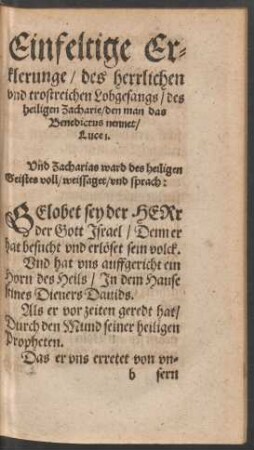 Einfeltige Er-
klerunge / des herrlichen
vnd trostreichen Lobgesangs / des
heiligen Zacharie / den man das
Benedictus nennet /
Luce 1.
Vnd Zacharias ward des heiligen
Geistes voll / weissaget / vnd sprach:
GElobet sey der HERr
der Gott Jsrael / Denn er
hat besucht vnd erlöset sein volck.
Vnd hat vns auffgericht ein
Horn des Heils / Jn dem Hause
seines Dieners Dauids.
Als er vor zeiten geredt hat /
Durch den Mund seiner heiligen
Propheten.
Das er vns erretet von vn-
b sern